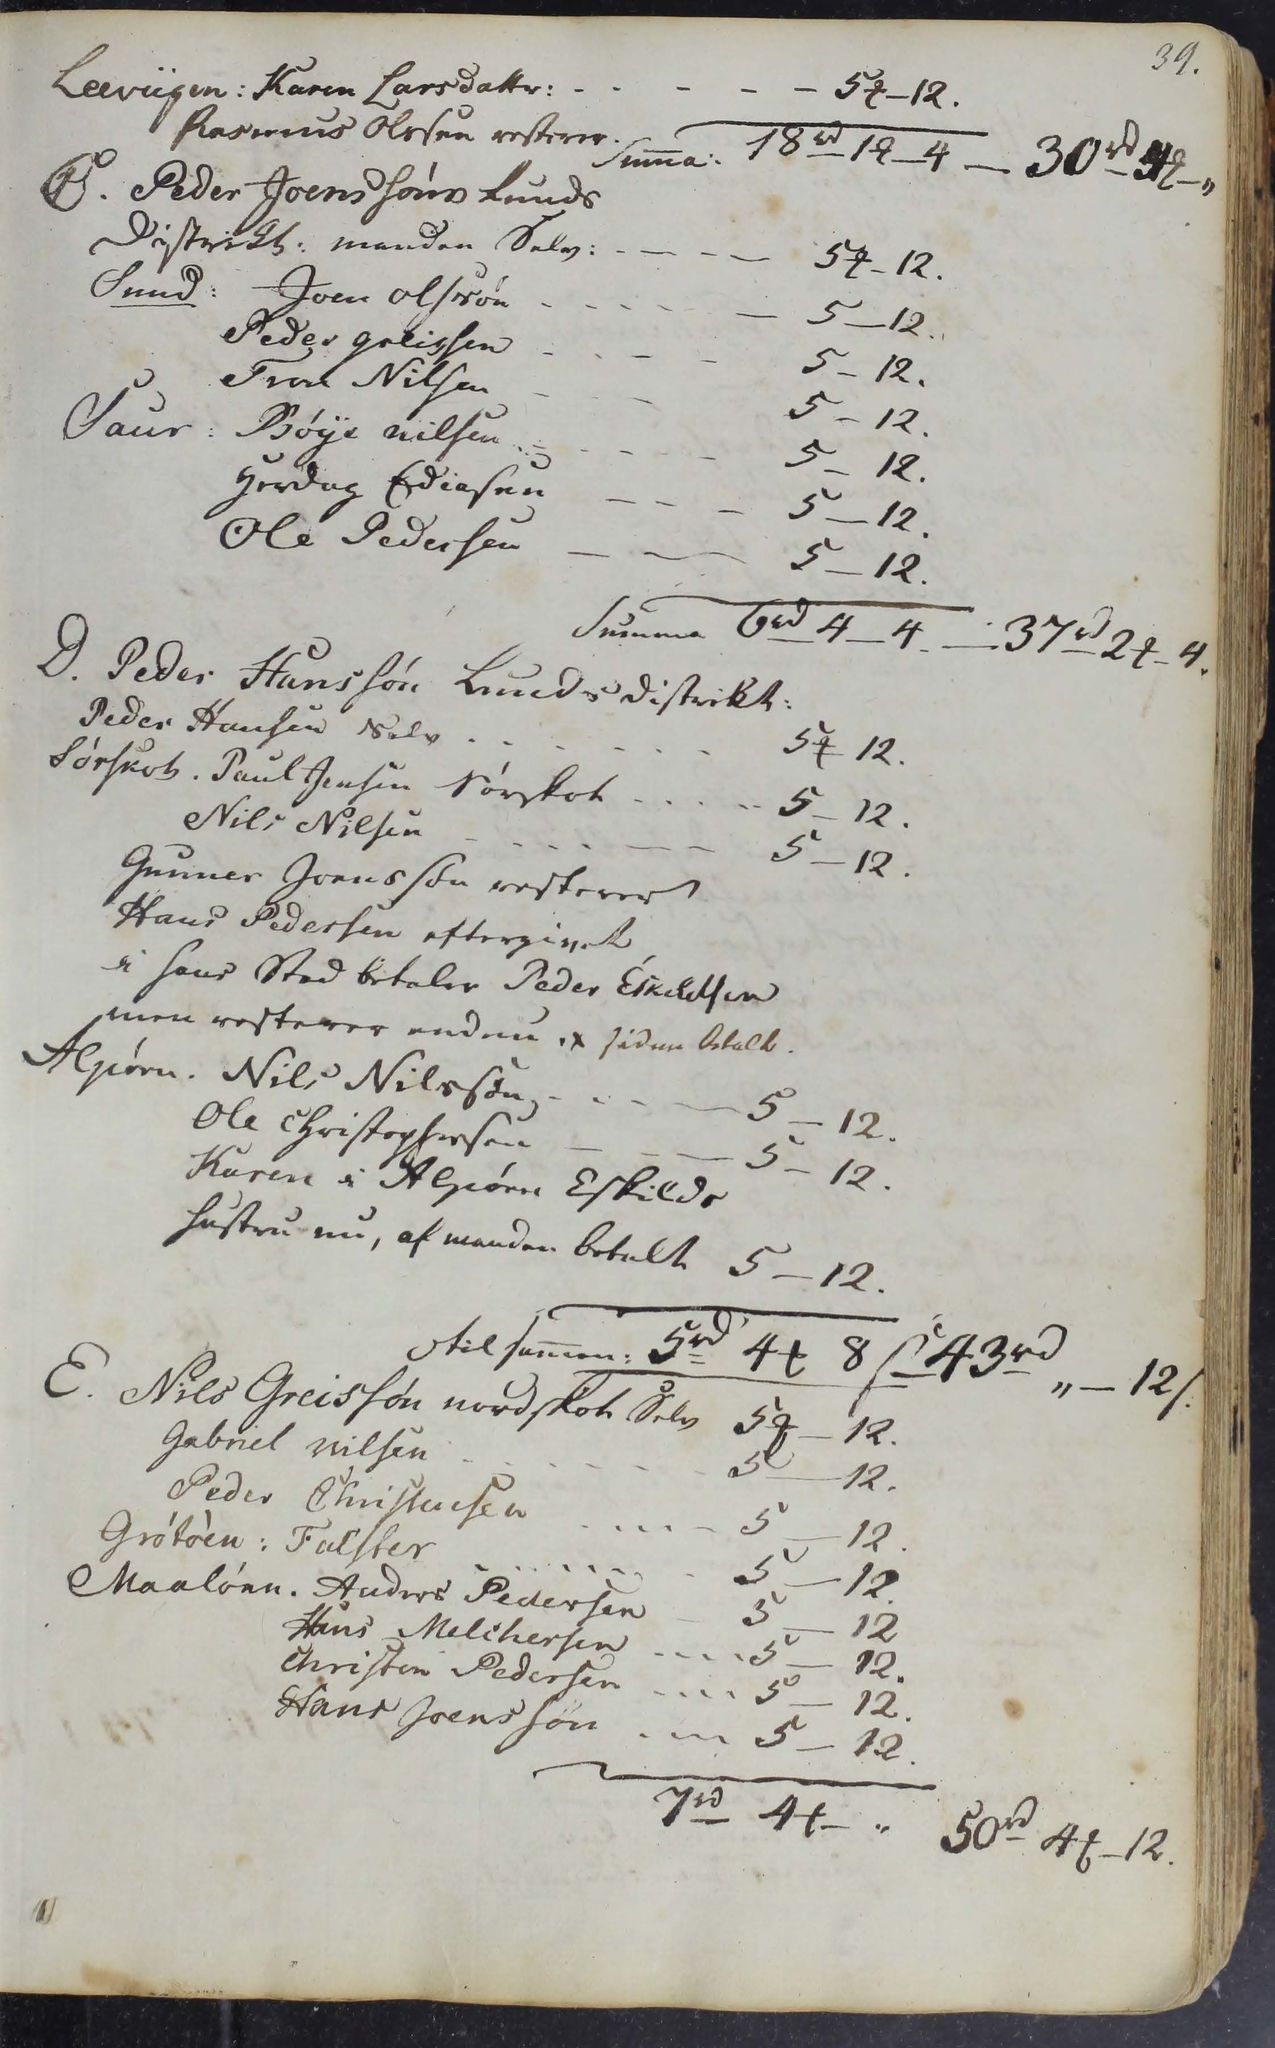 39.
Leevügen: Karen Larsdattr: - - - - - 5 ꝑ - 12.
Rasmus Olssen resterer.
Suma: 18 rd 1 ꝑ - 4 - 30 rd 4 ꝑ - "
C. Peder Joenssóns Lunds
District: manden Selv: - - - - 5 ꝑ - 12.
Sund: Joen olssón - - - - - 5 - 12.
Peder greissen - - - - 5 - 12.
Nilsen - - - 5 - 12.
Saur: Bóÿe nilsen - - - - 5 - 12.
- - - 5 - 12.
Ole Pedersen - - 5 - 12.
Summa 6 rd 4 - 4 - 37 rd 2 ꝑ - 4.
D. Peder Hanssón Lunds district:
Peder Hansen Selv - - - - - 5 ꝑ 12.
Sórskot. Paul Jensen Sórskot - - - - 5 - 12.
Nils Nilsen - - - - - 5 - 12.
Gunner Joenssón resterer
Hans Pedersen eftergivet
i hans Sted betaler Peder Eskeldsen
men resterer endnu. x siden betalt.
Alpórn. Nils Nilssón - - - - 5 - 12.
Ole Christophersen - - - 5 - 12.
Karen i Alpórn Eskilds
hustru nu, af manden betalt 5 - 12.
til samen: 5 rd 4 ꝑ 8 s 43 rd " - 12 s.
E. Nils Greissón nordskot Selv 5 ꝑ - 12.
Gabriel nilsen - - - - - 5 - 12.
Peder Christensen - - - - 5 - 12.
Grótóen: Falster - - - - - 5 - 12.
Maalóen. Anders Pedersen - 5 - 12
Hans Melchersen - - - - 5 - 12.
Christen Pedersen - - - - 5 - 12.
Hans Joenssón - - - 5 - 12.
7 rd 4 ꝑ - " 50 rd 4 ꝑ - 12.